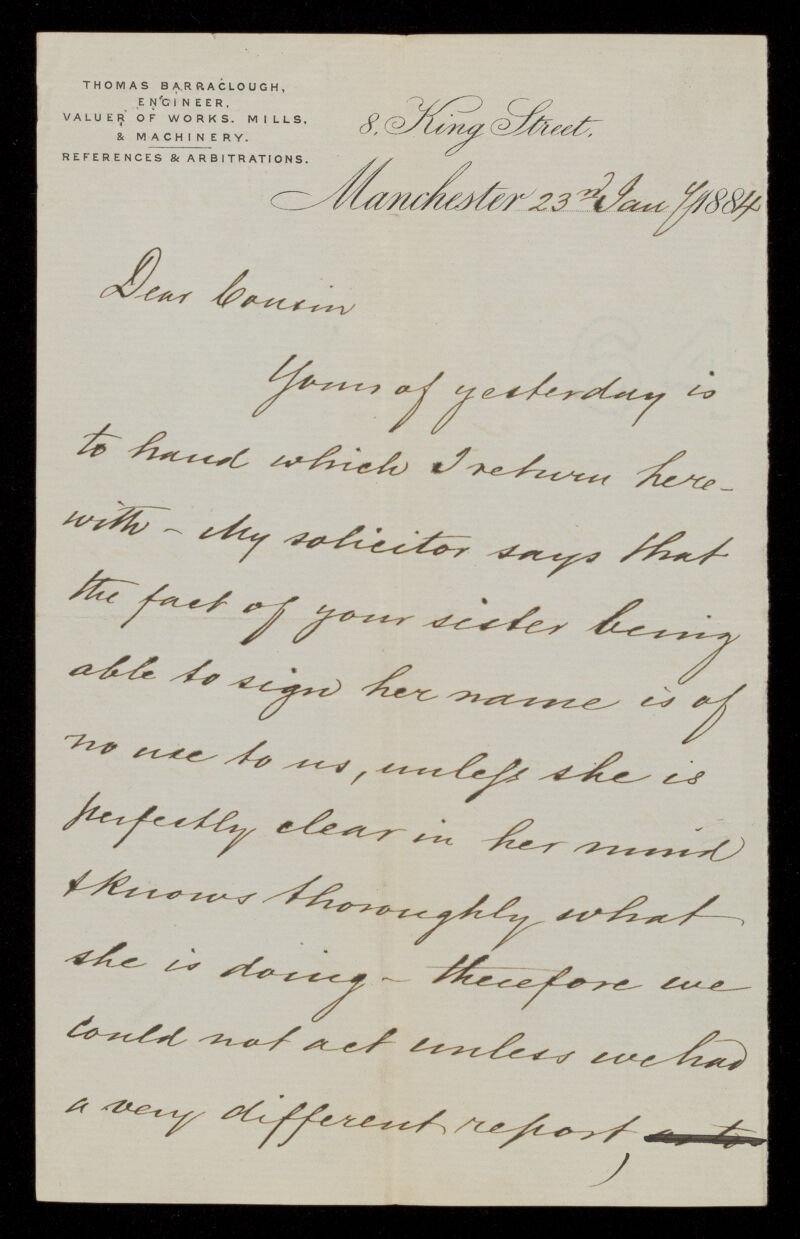 THOMAS BARRACLOUGH,
ENGINEER,
VALUER OF WORKS. MILLS,
& MACHINERY.
REFERENCES & ARBITRATIONS.
8, King Street,
Manchester 23rd Jany 1884
Dear Cousin
Yours of yesterday is
to hand which I return here-
with - My solicitor says that
the fact of your sister being
able to sign her name is of
no use to us, unless she is
perfectly clear in her mind
& knows thoroughly what
she is doing - therefore we
could not act unless we had
a very different report, as to